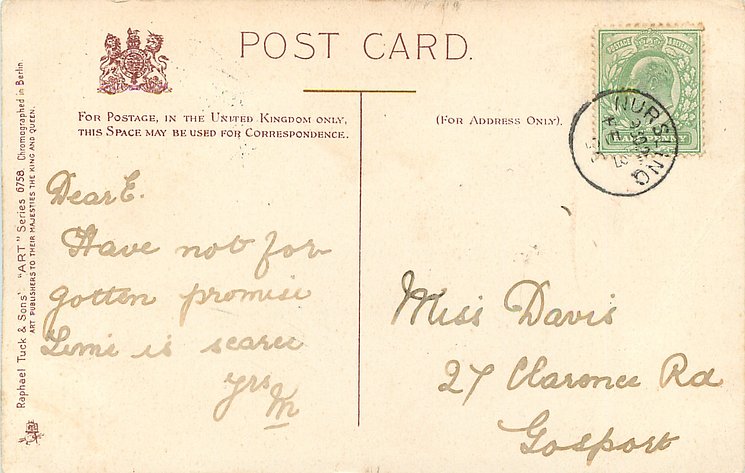 POST CARD.
FOR POSTAGE, IN THE UNITED KINGDOM ONLY,
THIS SPACE MAY BE USED FOR CORRESPONDENCE.
(FOR ADDRESS ONLY).
Raphael Tuck & Sons' "ART" Series 6758. Chromographed in Berlin.
ART PUBLISHERS TO THEIR MAJESTIES THE KING AND QUEEN.
Dear E.
Have not for
gotten promise
Time is scarce
Yrs
M
Miss Davis
27 Clarence Rd
Gosport
POSTAGE REVENUE
HALFPENNY
NURSLING